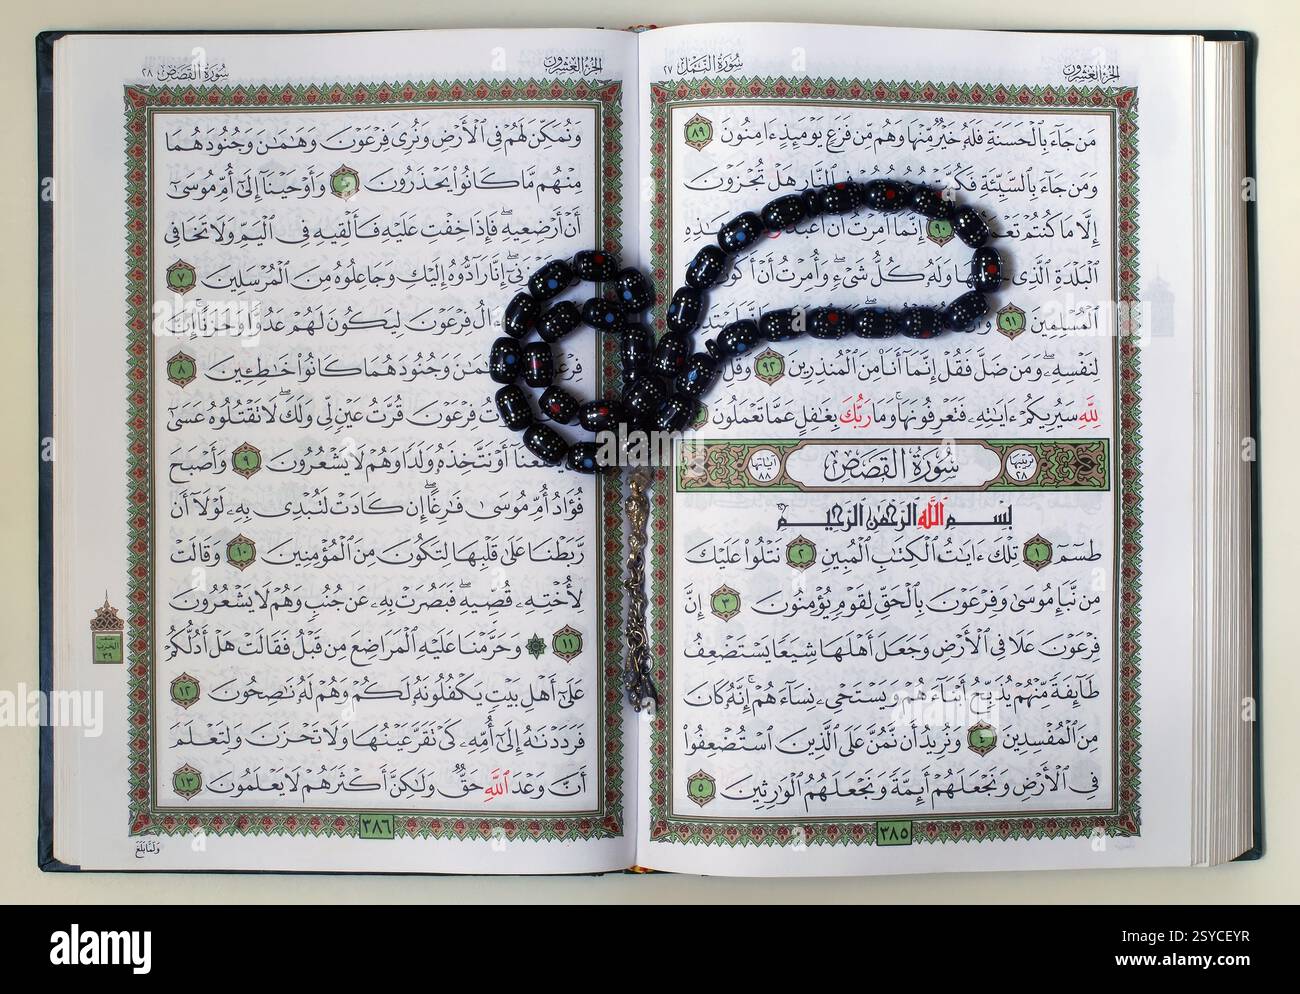 الجزء العشرون
سورة النمل ٢٧
من جاء بالحسنة فله خير منها وهم من فزع يومئذ ءامنون ٨٩
ومن جاء بالسيئة النار هل تجزون
إلا ما كنتم ٩٠ إنما أمرت أن أعبد
البلدة الذي وله كل شيء وأمرت أن أكون
المسلمين ٩١
لنفسه ومن ضل فقل إنما أنا من المنذرين ٩٢ وقل
لله سيريكم ءايته فتعرفونها وما ربك بغفل عما تعملون
ترتيبها ٢٨ سورة القصص آياتها ٨٨
بسم الله الرحمن الرحيم
طسم ١ تلك ءايت الكتب المبين ٢ نتلوا عليك
من نبإ موسى وفرعون بالحق لقوم يؤمنون ٣ إن
فرعون علا في الأرض وجعل أهلها شيعا يستضعف
طائفة منهم يذبح أبناءهم ويستحيء نساءهم إنه كان
من المفسدين ٤ ونريد أن نمن على الذين استضعفوا
في الأرض ونجعلهم أئمة ونجعلهم الوارثين ٥
٣٨٥
الجزء العشرون
سورة القصص ٢٨
ونمكن لهم في الأرض ونري فرعون وهمن وجنودهما
منهم ما كانوا يحذرون ٦ وأوحينا إلى أم موسى
أن أرضعيه فإذا خفت عليه فألقيه في اليم ولا تخافي
إنا رادوه إليك وجاعلوه من المرسلين ٧
ال فرعون ليكون لهم عدوا وحزنا إن
وجنودهما كانوا خطئين ٨
فرعون قرت عين لي ولك لا تقتلوه عسى
أو نتخذه ولدا وهم لا يشعرون ٩ وأصبح
فؤاد أم موسى فرغا إن كادت لتبدي به لولا أن
ربطنا على قلبها لتكون من المؤمنين ١٠ وقالت
لأخته قصيه فبصرت به عن جنب وهم لا يشعرون
١١ وحرمنا عليه المراضع من قبل فقالت هل أدلكم
على أهل بيت يكفلونه لكم وهم له نصحون ١٢
فرددنه إلى أمه كي تقر عينها ولا تحزن ولتعلم
أن وعد الله حق ولكن أكثرهم لا يعلمون ١٣
نصف الحزب ٣٩
٣٨٦
ولما بلغ
alamy
Image ID: 2SYCEYR
www.alamy.com